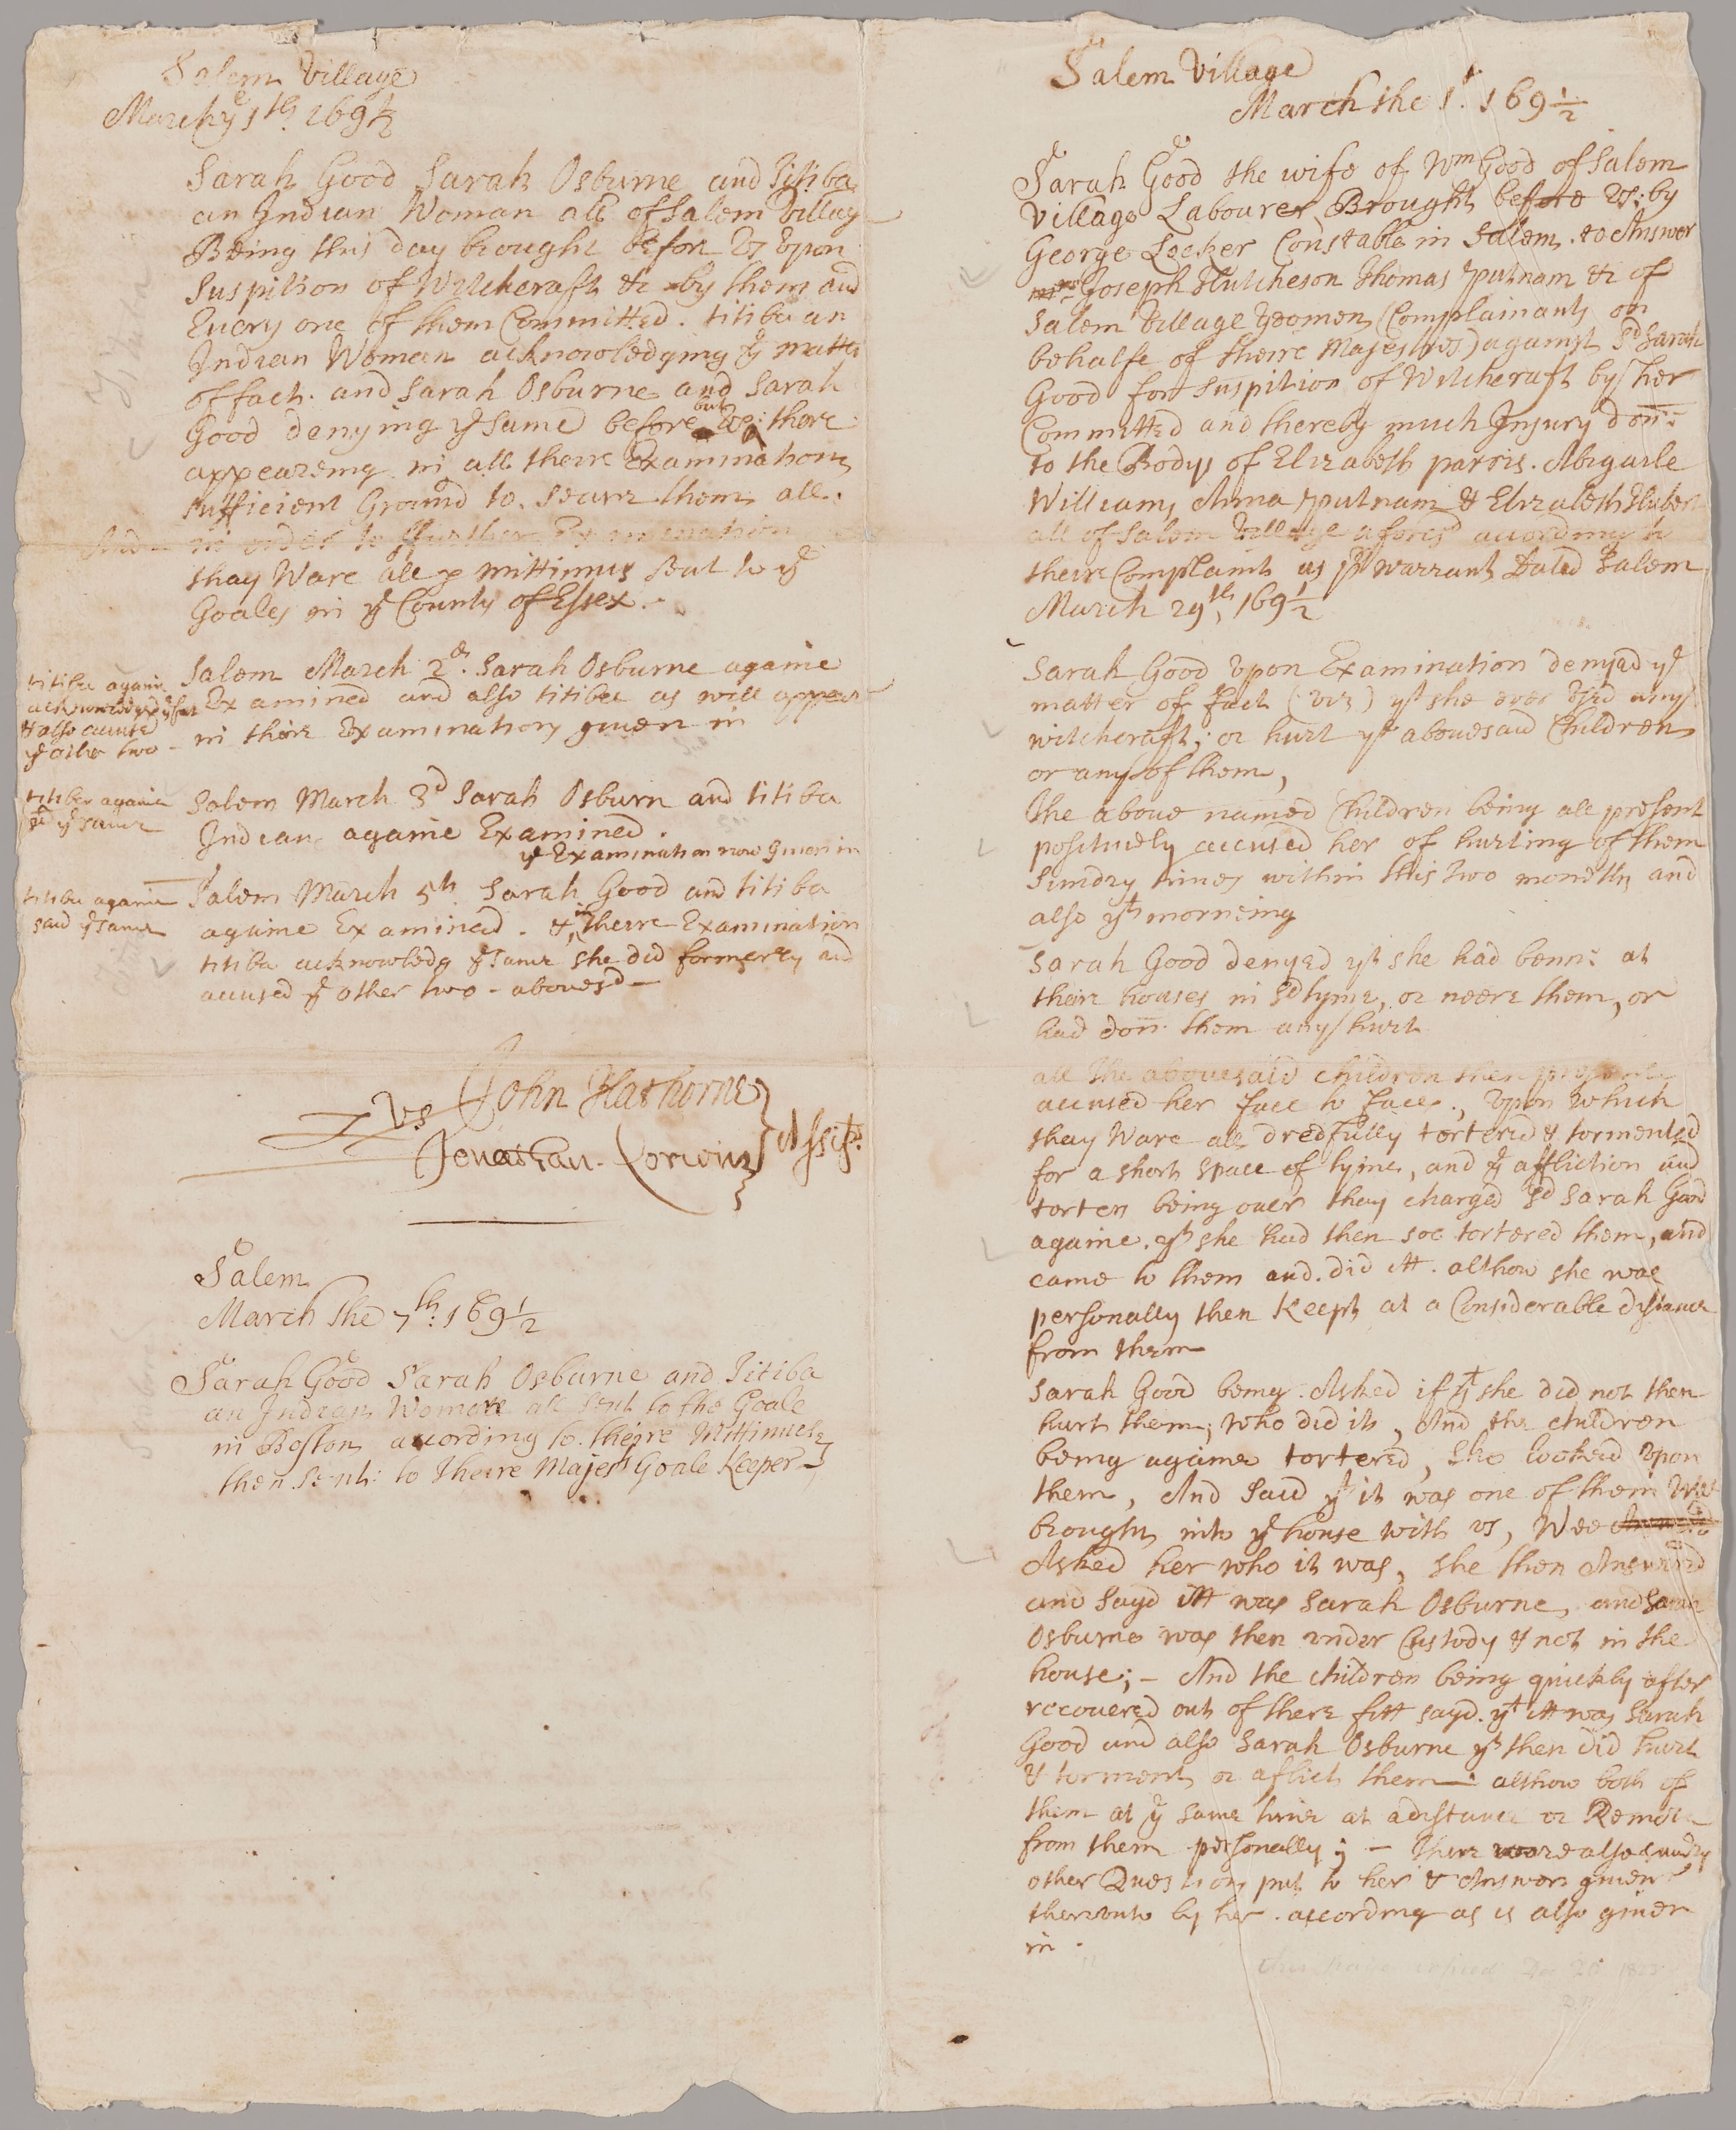 Salem Village
March ye 1th 169½
Sarah Good Sarah Osburne and Titiba
an Indian Woman all of Salem Village
Being this day brought before Us upon
Suspition of Witchcraft &c by them and
Every one of them Committed. titiba an
Indian Woman acknowledging ye matter
of fact. and Sarah Osburne and Sarah
Good denying ye same before us: but there
appeareing in all theire Examinations
sufficient Ground to secure them all.
And in order to further Examination
thay Ware all p mittimus sent to ye
Goales in ye County of Essex.
titiba againe
acknowledged ye fact
& also accused
ye other two -
Salem March 2d. Sarah Osburne againe
Examined and also titiba as will appear
in their Examinations given in
titiba againe
sd ye same
Salem March 3d Sarah Osburn and titiba
Indian againe Examined.
ye Examination now Given in
titiba againe
said ye same
Salem March 5th. Sarah Good and titiba
againe Examined. & in theire Examination
titiba acknowledg ye same she did formerly and
accused ye other two - abovesd -
us John Hathorne
Jonathan. Corwin } Assists.
Salem
March the 7th: 169½
Sarah Good Sarah Osburne and Titiba
an Indian Woman all sent to the Goale
in Boston according to. theire Mittimuses
then sent: to Theire Majests Goale Keeper -
Salem Village
March the 1t. 169½
Sarah Good the wife of Wm Good of Salem
Village Labourer Brought before us: by
George Locker Constable in Salem. to Answer
Joseph Hutcheson Thomas putnam &c of
Salem Village yeomen (Complainants on
behalfe of theire Majesties) against Sd Sarah
Good for suspition of Witchcraft by her
Committed and thereby much Injury don:
to the Bodys of Elizabeth parris. Abigaile
Williams Anna putnam & Elizabeth Hubert
all of Salem Village aforesd according to
theire Complaint as pr warrant Dated Salem
March 29th, 169½
Sarah Good upon Examination denyed ye
matter of fact (viz) yt she ever used any
witchcraft; or hurt ye abovesaid Children
or any of them,
The above named Children being all present
positively accused her of hurting of them
Sundry times within this two moneths and
also yt morneing
Sarah Good denyed yt she had benn: at
theire houses in sd tyme, or neere them, or
had don: them any hurt
all the abovesaid children then present
accused her face to face., upon which
thay Ware all dredfully tortered & tormented
for a short space of tyme, and ye affliction and
torters being over they charged sd Sarah Good
againe. yt she had then soe tortered them, and
came to them and. did itt. althow she was
personally then Keept at a Considerable distance
from them
Sarah Good being. Asked if yt she did not then
hurt them; who did it, And the children
being againe tortered, she looked upon
them, And said yt it was one of them Wee
brought into ye house with us, Wee
Asked her who it was, she then Answered
and sayd itt was Sarah Osburne, and Sarah
Osburne was then under Custody & not in the
house; - And the children being quickly after
recovered out of there fitt sayd. yt itt was Sarah
Good and also Sarah Osburne yt then did hurt
& torment or aflict them - althow both of
them at ye same time at a distance or Remote
from them personally; - there were also sundry
other Questions put to her & Answers given
thereunto by her. according as is also given
in.